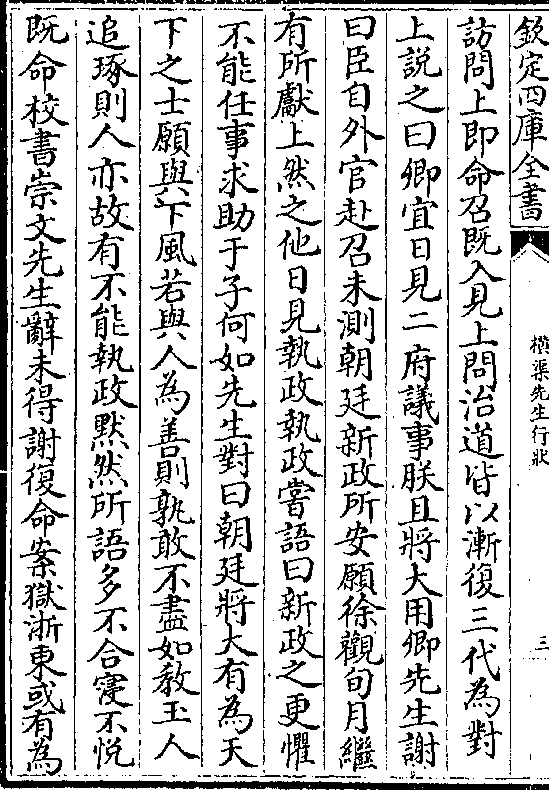 欽定四庫全書
橫渠先生行狀
三
訪問上即命召既入見上問治道皆以漸復三代為對
上説之曰卿宜日見二府議事朕且將大用卿先生謝
曰臣自外官赴召未測朝廷新政所安願徐觀旬月繼
有所獻上然之他日見執政執政嘗語曰新政之更懼
不能任事求助于子何如先生對曰朝廷將大有為天
下之士願與下風若與人為善則孰敢不盡如教玉人
追琢則人亦故有不能執政默然所語多不合寖不悦
既命校書崇文先生辭未得謝復命案獄浙東或有為